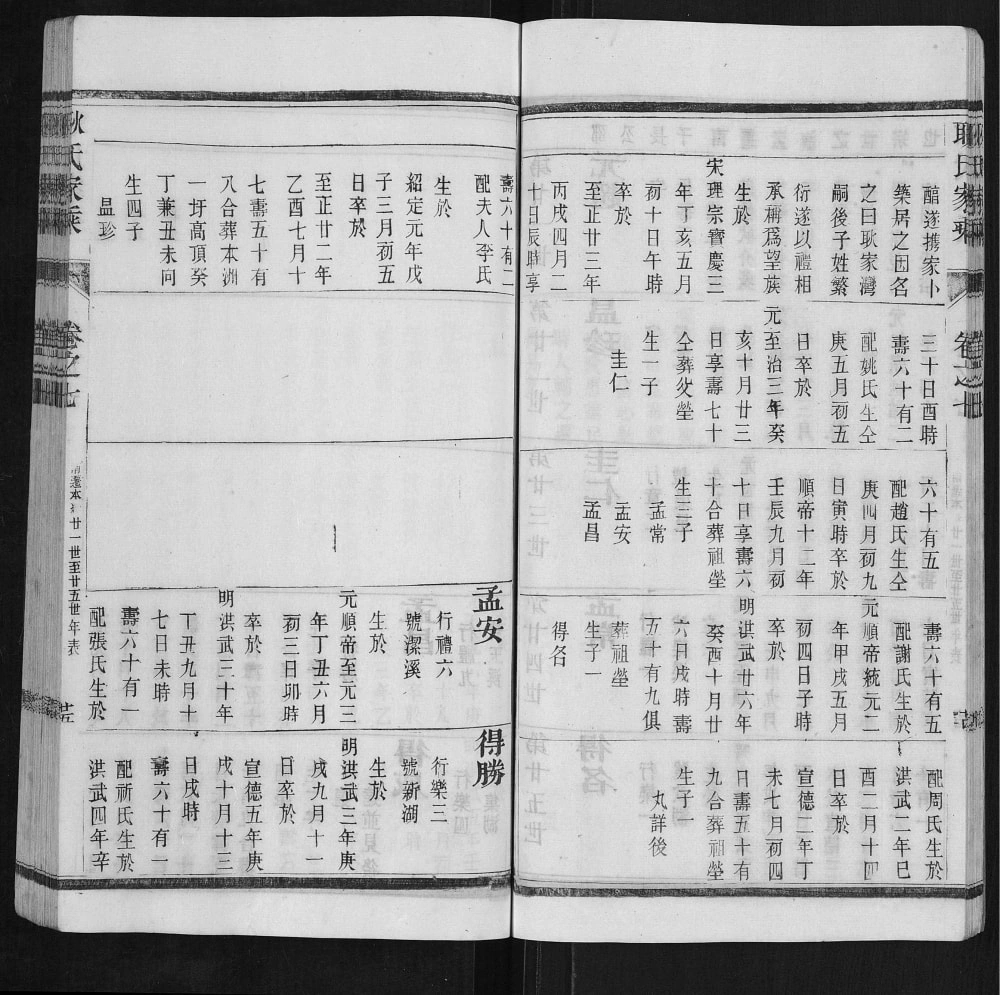 耿氏家乘
卷之七
酷遂携家卜
築居之因名
之曰耿家灣
嗣後子姓繁
衍遂以禮相
承稱爲望族
生於
宋理宗寶慶三
年丁亥五月
初十日午時
卒於
至正廿三年
丙戌四月二
十日辰時享
三十日酉時
壽六十有二
配姚氏生仝
庚五月初五
日卒於
元至治三年癸
亥十月廿三
日享壽七十
仝葬父塋
生一子
圭仁
六十有五
配趙氏生仝
庚四月初九
日寅時卒於
順帝十二年
壬辰九月初
十日享壽六
十合葬祖塋
生三子
孟常
孟安
孟昌
壽六十有五
配謝氏生於
元順帝統元二
年甲戌五月
初四日子時
卒於
明洪武廿六年
癸酉十月廿
六日戌時壽
五十有九俱
葬祖塋
生子一
得名
配周氏生於
洪武二年巳
酉二月十四
日卒於
宣德二年丁
未七月初四
日壽五十有
九合葬祖塋
生子一
丸詳後
壽六十有二
配夫人李氏
生於
紹定元年戊
子三月初五
日卒於
至正廿二年
乙酉七月十
七壽五十有
八合葬本洲
一圩高頂癸
丁兼丑未向
生四子
昷珍
孟安
行禮六
號潔溪
生於
元順帝至元三
年丁丑六月
初三日卯時
卒於
明洪武三十年
丁丑九月十
七日未時
壽六十有一
配張氏生於
得勝
行樂三
號新湖
生於
明洪武三年庚
戌九月十一
日卒於
宣德五年庚
戌十月十三
日戌時
壽六十有一
配祈氏生於
洪武四年辛
耿氏家乘
卷之七
廿一世至廿五世年表